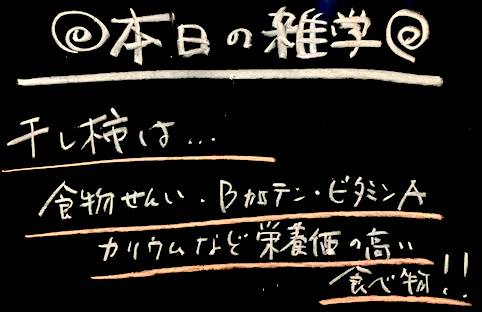 本日の雑学
干し柿は...
食物せんい・Bカロテン・ビタミンA
カリウムなど栄養価の高い
食べ物!!